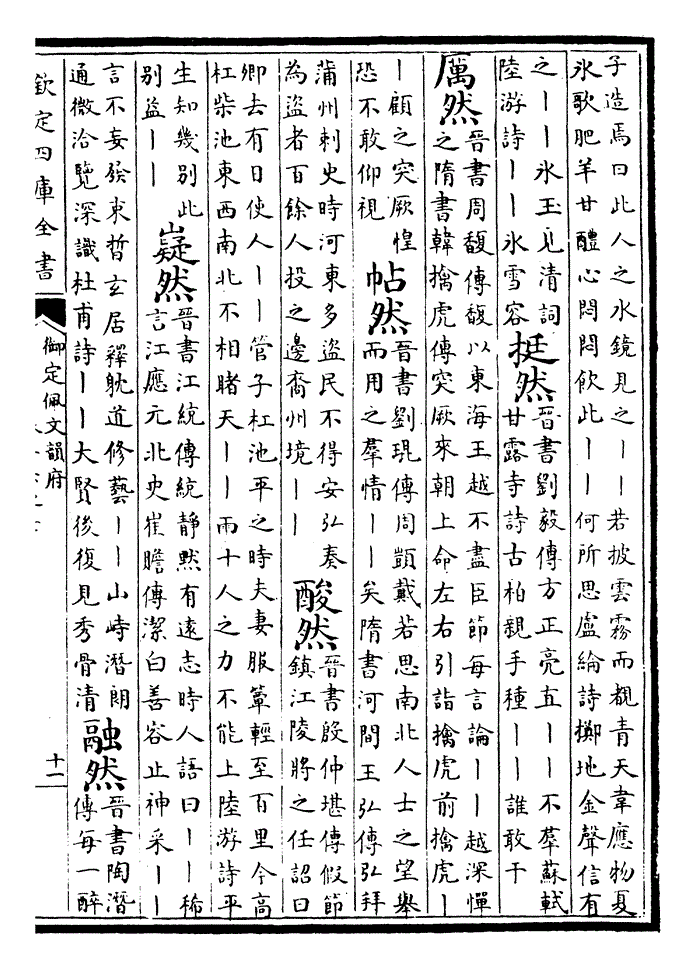 子造焉曰此人之水鏡見之丨丨若披雲霧而覩青天韋應物夏
氷歌肥羊甘醴心悶悶飲此丨丨何所思盧綸詩擲地金聲信有
之丨丨氷玉見清詞
陸游詩丨丨氷雪容
挺然
晉書劉毅傳方正亮直丨丨不羣蘇軾
甘露寺詩古柏親手種丨丨誰敢干
厲然
晉書周馥傳馥以東海王越不盡臣節每言論丨丨越深憚
之隋書韓擒虎傳突厥來朝上命左右引詣擒虎前擒虎丨
丨顧之突厥惶
恐不敢仰視
帖然
晉書劉琨傳周顗戴若思南北人士之望舉
而用之羣情丨丨矣隋書河間王弘傳弘拜
蒲州刺史時河東多盜民不得安弘奏
為盜者百餘人投之邊裔州境丨丨
酸然
晉書殷仲堪傳假節
鎮江陵將之任詔曰
卿去有日使人丨丨管子杠池平之時夫妻服簟輕至百里今高
杠柴池東西南北不相睹天丨丨雨十人之力不能上陸游詩平
生知幾別此
別益丨丨
嶷然
晉書江統傳統靜默有遠志時人語曰丨丨稀
言江應元北史崔瞻傳潔白善容止神采丨丨
言不妄發束晳玄居釋躭道修藝丨丨山峙潛朗
通微洽覽深識杜甫詩丨丨大賢後復見秀骨清
融然
晉書陶潛
傳每一醉
欽定四庫全書
御定佩文韻府
十一